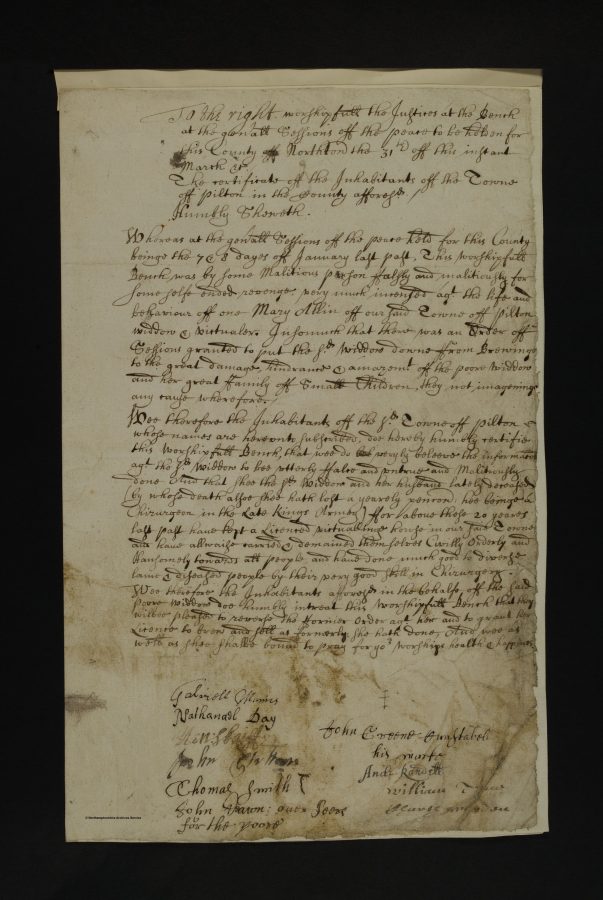 To the right worshipfull the Justices at the Bench
at the gen'all Sessions off the peace to be holden for
this County off Northton the 31th off this instant
March
The certificate off the Inhabitants off the Towne
off Pilton in the County afforesd
Humbly Sheweth.
Whereas at the gen'all Sessions off the peace held for this County
beinge the 7 & 8 dayes off January last past, This worshipfull
Bench was by some Malitious person ffalsly and malitiously for
some selfe ended revenge, very much incensed agt the life and
behaviour off one Mary Allin off our said Towne off pilton
widdow & victualer. Insomuch that there was an Order off
Sessions granted to put the sd widdow downe ffrom Brewinge
to the great damage, hindrance & amazemt off the poore widdow
and her great ffamily off Small Children, they not imageninge
any cause wherefore.
Wee therefore the Inhabitants off the sd Towne off pilton
whose names are hereunto subscribed, doe hereby humbly certifie
this Worshipfull Bench, that wee do really beleeve the informac
agt the sd Widdow to bee utterly ffalce and untrue and Malitiously
done And that shee the sd Widdow and her husband lately deceased
(by whose death allsoe shee hath lost a yearely pencon, hee beinge a
Chirurgeon in the Late Kings Armey) ffor above these 20 yeares
last past have kept a Licenced victualinge house in our said Towne
and have allwaise carried & demained themselves Civilly Orderly and
Hansomely towards all people and have done much good to diverse
lame & diseased people by their very good skill in Chirurgery
Wee therefore the Inhabitants afforesd in the behalfe off the said
poore widdow doe humbly intreat this Worshipfull Bench that they
wilbee pleased to reverse the fformer Order agt her and to grant her
Licence to brew and sell as formerly she hath done, And wee as
well as shee shalbe bound to pray for yor worships health & happines
Nathanael Day
John Greene Cunstabell
his marke
Thomas Smith
William
John : over Seere
for the poore
© Northamptonshire Archives Service